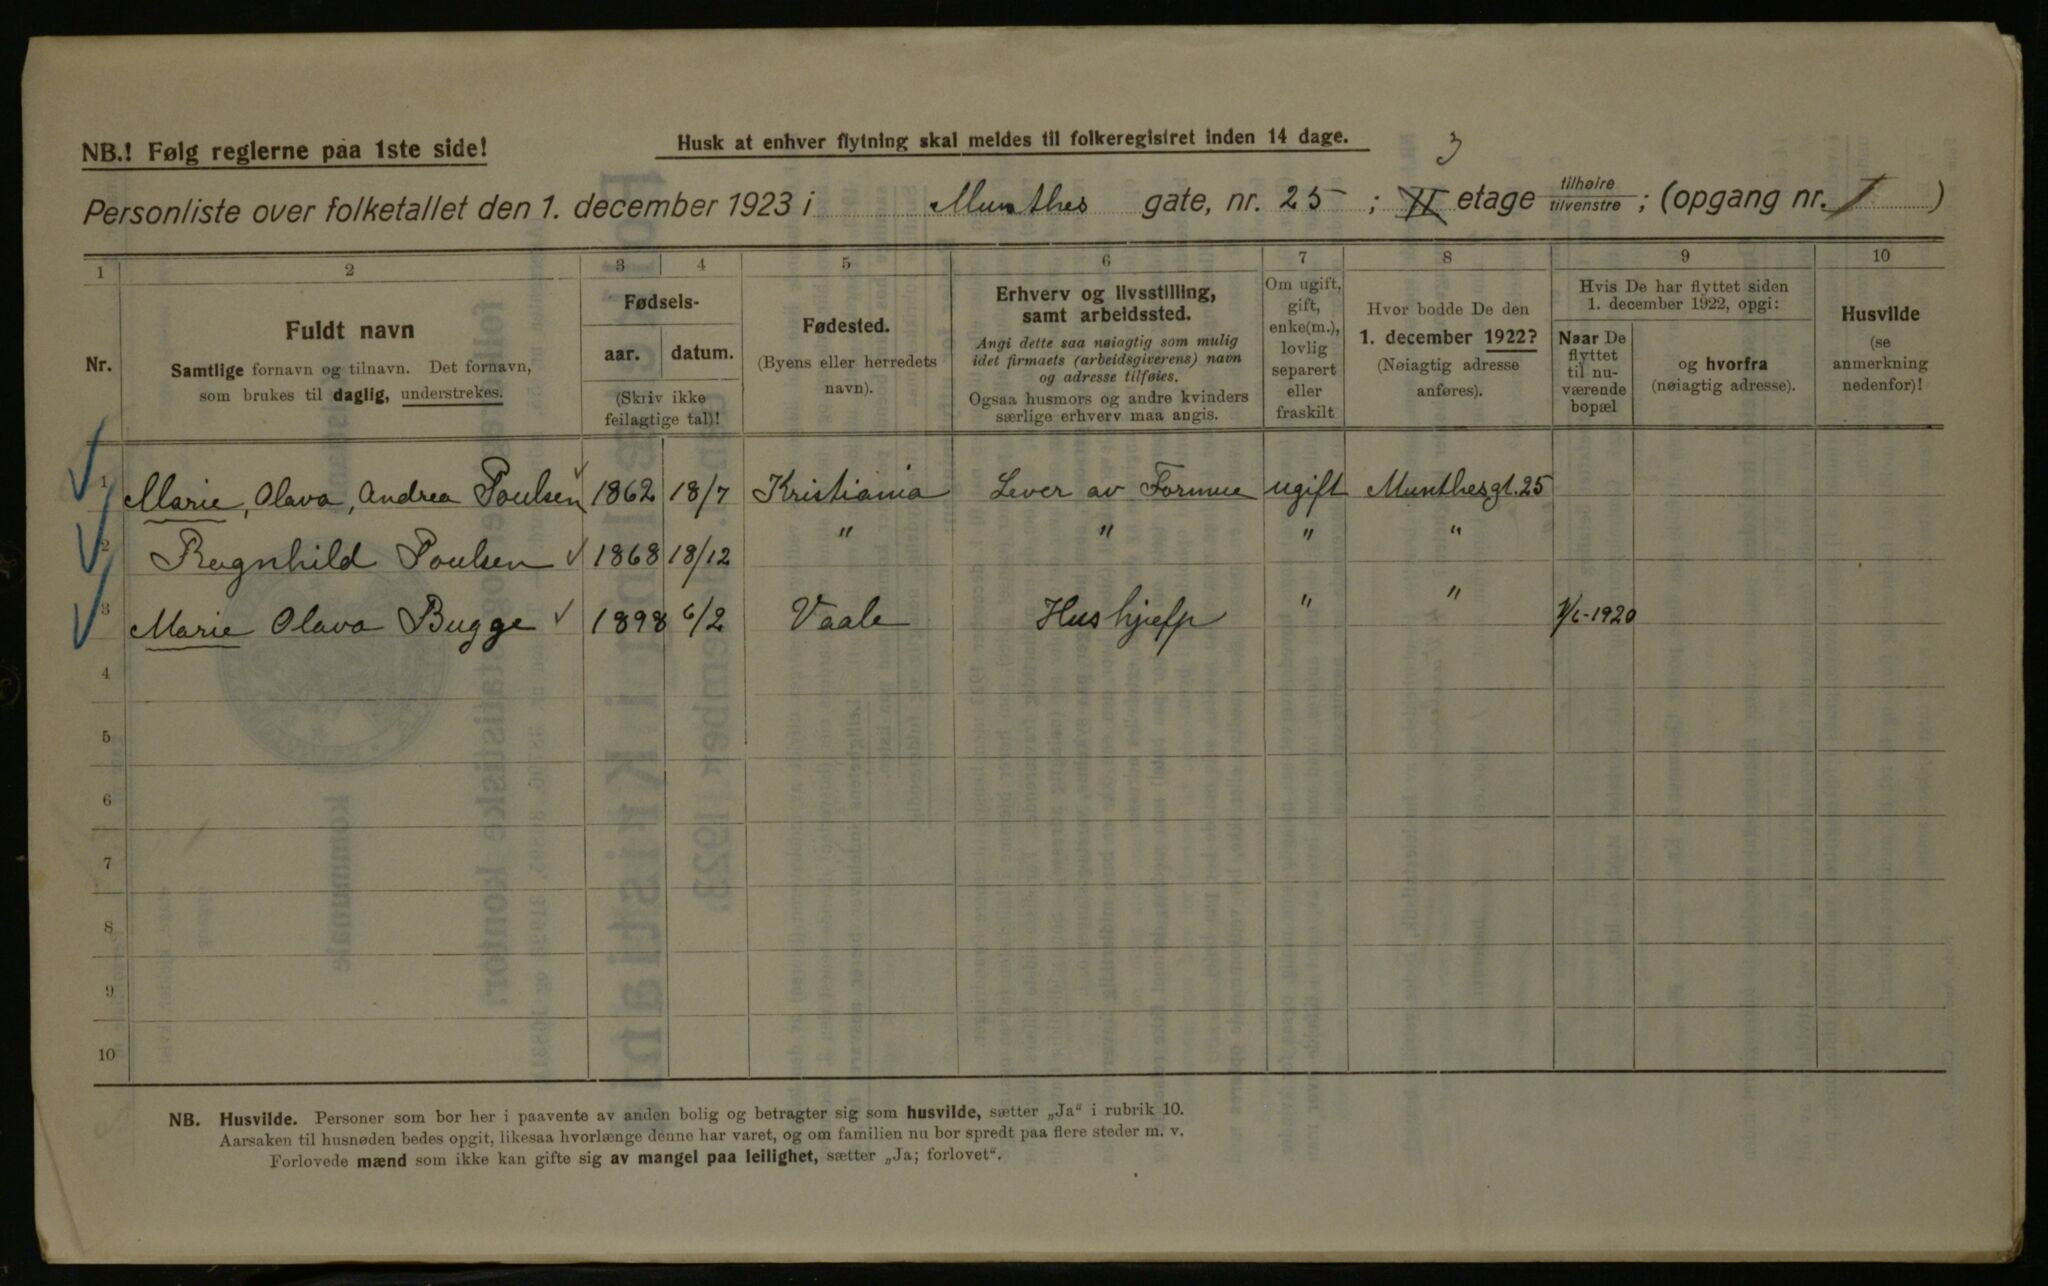 NB.! Følg reglerne paa 1ste side!
Husk at enhver flytning skal meldes til folkeregistret inden 14 dage.
3
Personliste over folketallet den 1. december 1923 i Munthes gate, nr. 25 ; II etage tilhøire tilvenstre ; (opgang nr. I )
1 2 3 4 5 6 7 8 9 10
Nr.
Fuldt navn
Samtlige fornavn og tilnavn. Det fornavn,
som brukes til daglig, understrekes.
Fødsels-
aar. datum.
(Skriv ikke
feilagtige tal)!
Fødested.
(Byens eller herredets
navn).
Erhverv og livsstilling,
samt arbeidssted.
Angi dette saa nøiagtig som mulig
idet firmaets (arbeidsgiverens) navn
og adresse tilføies.
Ogsaa husmors og andre kvinders
særlige erhverv maa angis.
Om ugift,
gift,
enke(m.),
lovlig
separert
eller
fraskilt
Hvor bodde De den
1. december 1922?
(Nøiagtig adresse
anføres).
Hvis De har flyttet siden
1. december 1922, opgi:
Naar De
flyttet
til nu-
værende
bopæl
og hvorfra
(nøiagtig adresse).
Husvilde
(se
anmerkning
nedenfor)!
1 Marie, Olava, Andrea Poulsen 1862 18/7 Kristiania Lever av Formue ugift Munthesgt. 25
2 Ragnhild Poulsen 1868 18/12 " " " "
3 Marie Olava Bugge 1898 6/2 Vaale Hushjelp " " 1920
4
5
6
7
8
9
10
NB. Husvilde. Personer som bor her i paavente av anden bolig og betragter sig som husvilde, sætter „Ja“ i rubrik 10.
Aarsaken til husnøden bedes opgit, likesaa hvorlænge denne har varet, og om familien nu bor spredt paa flere steder m. v.
Forlovede mænd som ikke kan gifte sig av mangel paa leilighet, sætter „Ja; forlovet“.